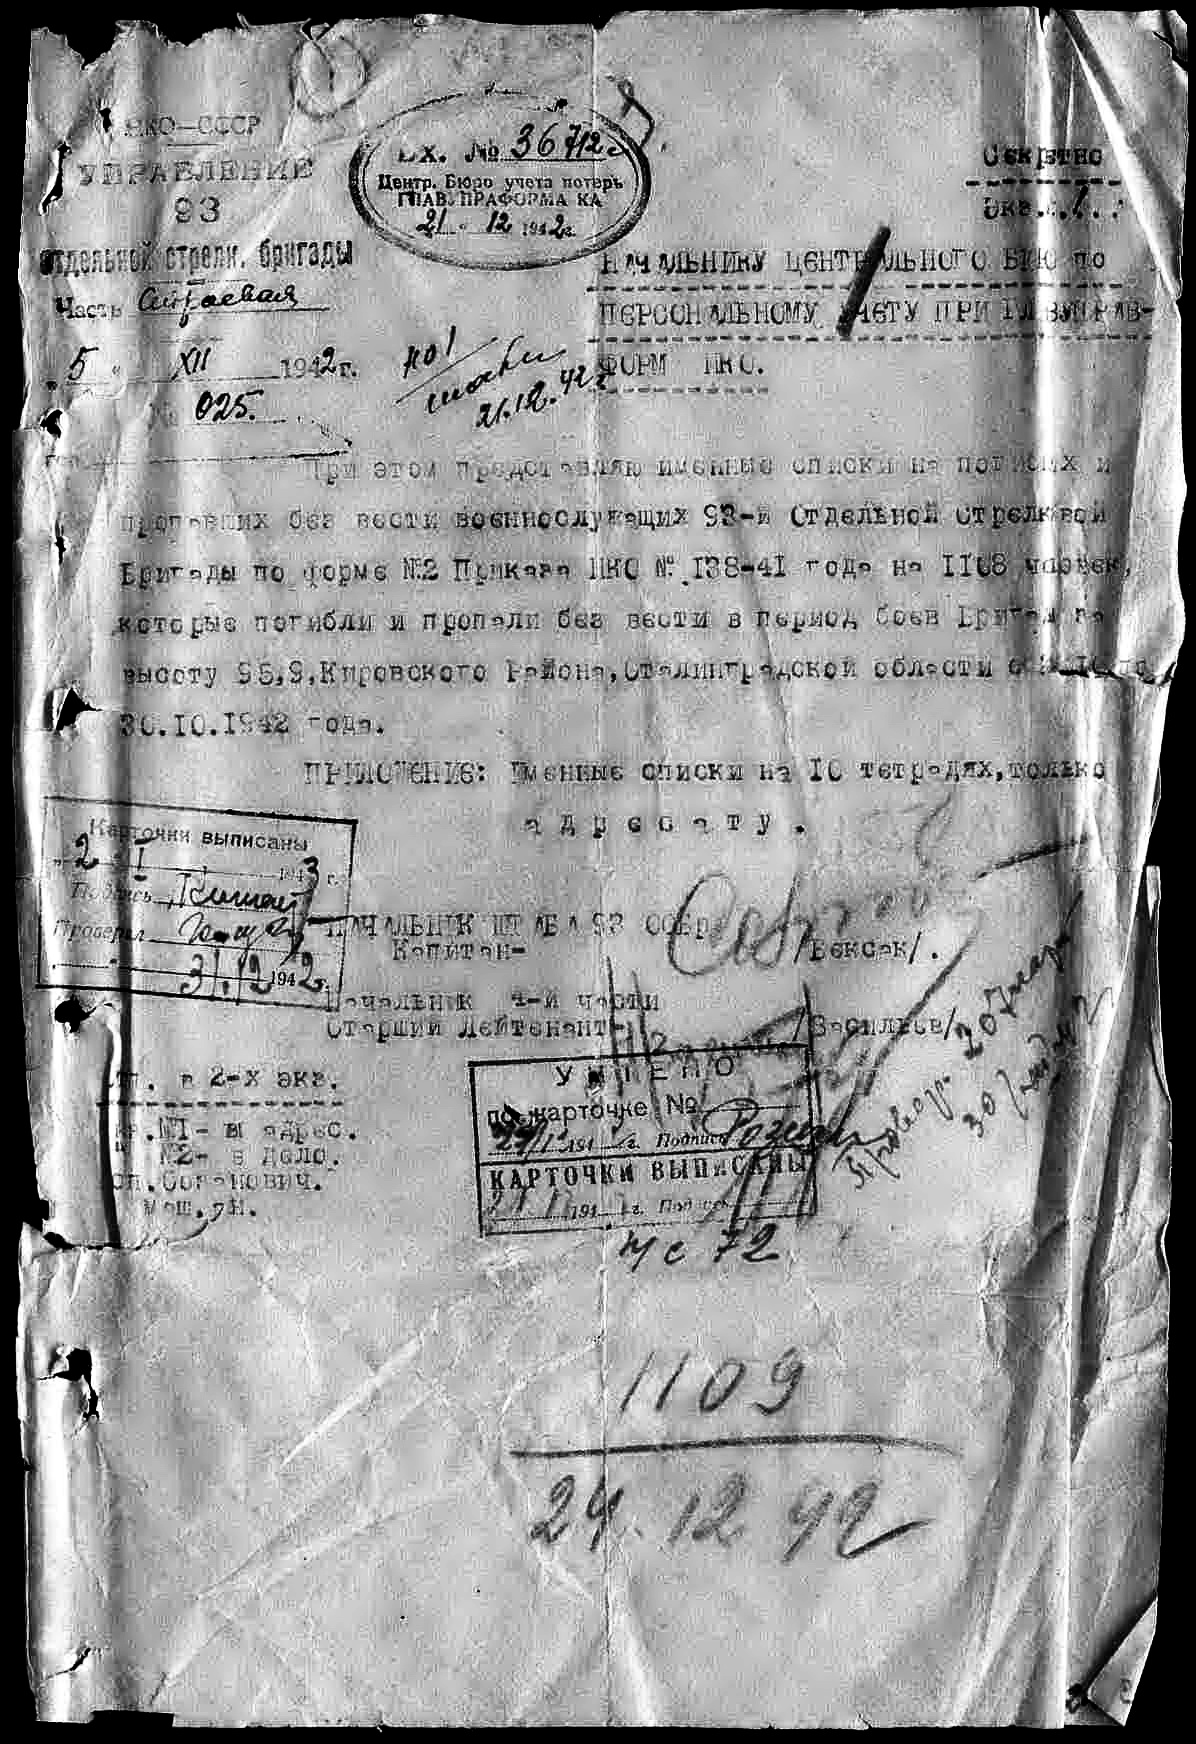 НКО—СССР
УПРАВЛЕНИЕ
93
отдельной стрелк. бригады
Часть Строевая
„ 5 “ XII 1942 г.
№ 025.
Вх. № 36712с
Центр. Бюро учета потерь
ГЛАВУПРАФОРМА КА
21 - 12 1942 г.
Секретно
Экз. 1.
НАЧАЛЬНИКУ ЦЕНТРАЛЬНОГО БЮРО по
ПЕРСОНАЛЬНОМУ УЧЕТУ ПРИ ГЛАВУПРАВ-
ФОРМ НКО.
но!
21.12.42 г
При этом представляю именные списки на погибших и
пропавших без вести военнослужащих 93-й Отдельной Стрелковой
Бригады по форме №2 Приказа НКО № 138-41 года на 1108 человек,
которые погибли и пропали без вести в период боев Бригады за
высоту 95,9, Кировского Района, Сталинградской области с
30.10.1942 года.
ПРИЛОЖЕНИЕ: Именные списки на 10 тетрадях, только
адресату.
Карточки выписаны
„ 2 I 1943 г.
Подпись
Проверил
31.12 1942 г.
НАЧАЛЬНИК ШТАБА 93 ООБР
Капитан- /Бексак/.
Начальник 4-й части
Старший Лейтенант- /Васильев/
в 2-х экз.
№1- в адрес.
" №2- в дело.
маш. эн.
УЧТЕНО
по карточке №
191 г. Подпись
КАРТОЧКИ ВЫПИСАНЫ
191 г. Подпись
н/с 72
1109
24.12 42